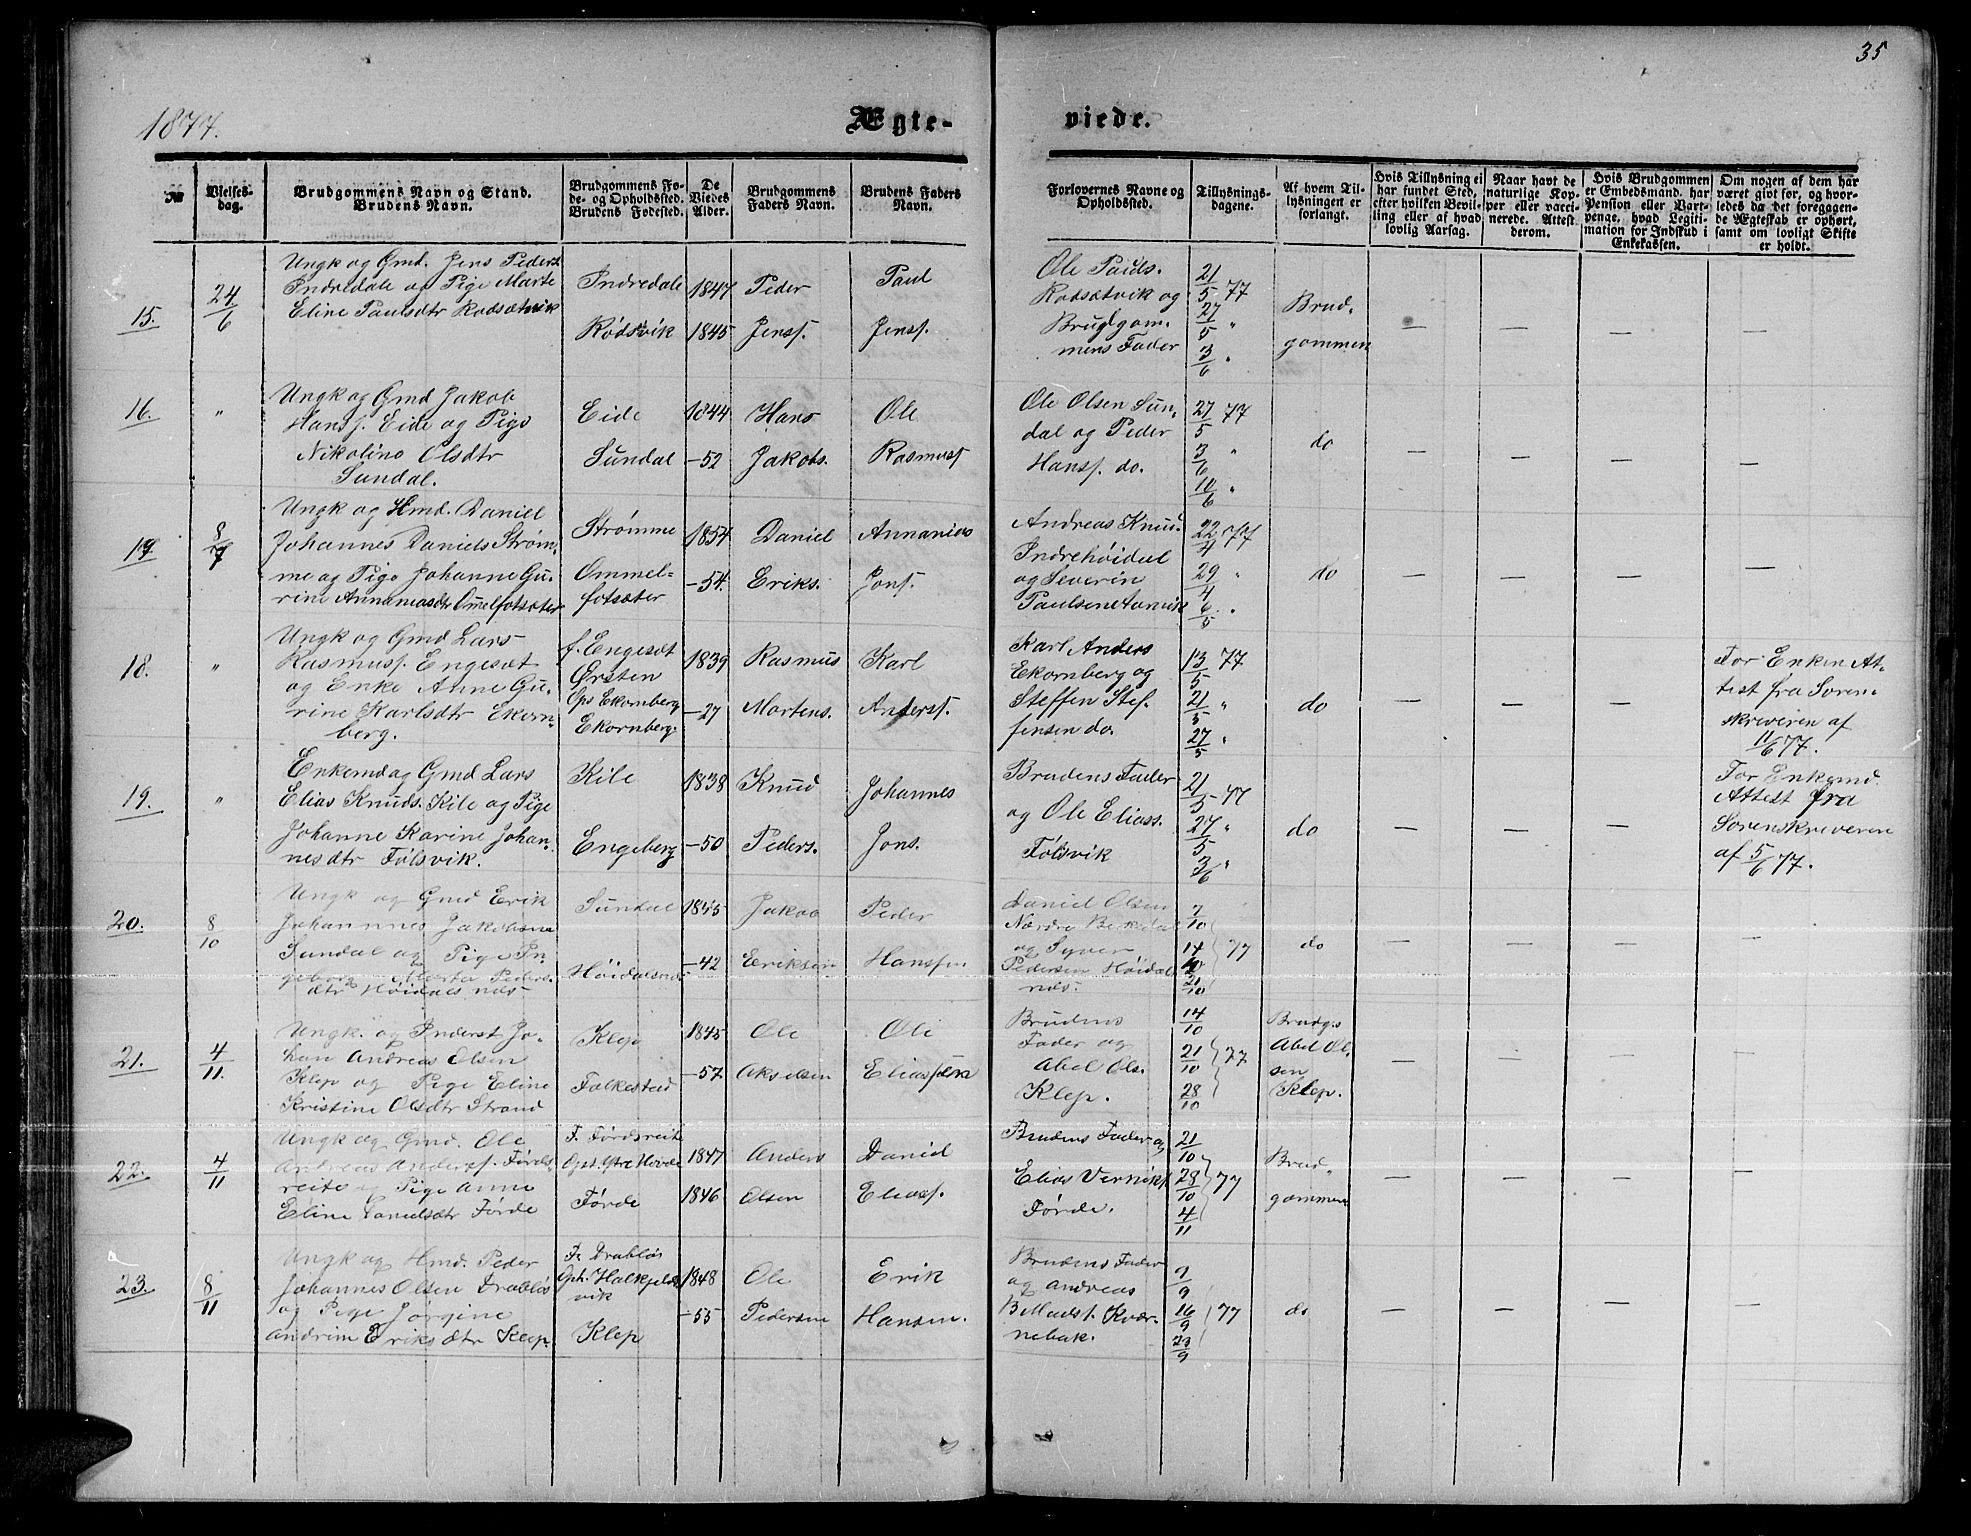 35
1877.
Ægte-
viede.
No
Vielses-
dag.
Brudgommens Navn og Stand.
Brudens Navn.
Brudgommens Fø-
de- og Opholdssted.
Brudens Fødested.
De
Viedes
Alder.
Brudgommens
Faders Navn.
Brudens Faders
Navn.
Forlovernes Navne og
Opholdssted.
Tillysnings-
dagene.
Af hvem Til-
lysningen er
forlangt.
Hvis Tillysning ei
har fundet Sted,
efter hvilken Bevil-
ling eller af hvad
lovlig Aarsag.
Naar havt de
naturlige Kop-
per eller vacci-
nerede. Attest
derom.
Hvis Brudgommen
er Embedsmand, har
Pension eller Vart-
penge, hvad Legiti-
mation for Indskud i
Enkekassen.
Om nogen af dem har
været givt før, og hvor-
ledes da det foregagen-
de Ægteskab er ophørt,
samt om lovligt Skifte
er holdt.
15.
24/6
Ungk og Gmd. Jens Peders.
Indredale og Pige Marte
Eline Paulsdtr Rødsætvik
Indredale
Rødsvik
1847
1845
Peder
Jensf.
Paul
Jensf.
Ole Pauls.
Rødsætvik og
Brudgom-
mens Fader
21/5 77
27/5 "
3/6 "
Brud-
gommen
— — — —
16.
"
Ungk og Gmd Jakob
Hansf. Eide og Pige
Nikoline Olsdtr
Sundal.
Eide
Sundal
1844
-52
Hans
Jakobs.
Ole
Rasmusf
Ole Olsen Sun-
dal og Peder
Hansf. do.
27/5 77
3/6 "
10/6 "
do
— — — —
17
8/7
Ungk og Hmd. Daniel
Johannes Daniels Strøm-
me og Pige Johanne Gu-
rine Annaniasdtr Omelfotsæter
Strømme
Ommel-
fotsæter
1854
-54.
Daniel
Eriks.
Annanias
Jonf.
Andreas Knud.
Indrehøidal
og Severin
Paulsen Aarvik
22/4 77
29/4 "
6/5 "
do
— — — —
18.
"
Ungk og Gmd Lars
Rasmusf. Engesæt
og Enke Anne Gu-
rine Karlsdtr Ekorn-
berg.
f. Engesæt
Ørsten
Ops Ekornberg
Ekornberg.
1839
-27
Rasmus
Mortens.
Karl
Andersf.
Karl Anders
Ekornberg og
Steffen Stef-
fensen do.
13/5 77
21/5 "
27/5 "
do
— — —
For Enken At-
test fra Soren-
skriveren af
11/6 77.
19.
"
Enkemd og Gmd Lars
Elias Knuds. Kile og Pige
Johanne Karine Johan-
nesdtr Følsvik.
Kile
Engeberg
1838
-50
Knud
Peders.
Johannes
Jons.
Brudens Fader
og Ole Eliass.
Følsvik
21/5 77
27/5 "
3/6 "
do
— — —
For Enkemd.
Attest fra
Sorenskriveren
af 5/6 77.
20.
8/10
Ungk og Gmd Erik
Johannes Jakobsen
Sundal og Pige In-
geborg Marta Peders-
dtr Høidalsnes
Sundal
Høidalsnes
1845
-42
Jakob
Eriksen
Peder
Hansen
Daniel Olsen
Nædre
og Syver
Pedersen Høidal-
nes.
7/10
14/10 77
21/10
do
— — — —
21.
4/11.
Ungk. og Inderst Jo-
han Andreas Olsen
Klep og Pige Eline
Kristine Olsdtr Strand
Klep
Folkestad
1845
-57.
Ole
Akselsen
Ole
Eliassen
Brudens
Fader og
Abel Ols.
Klep.
14/10
21/10 77
28/10
Brudg. o
Abel Ol-
sen
Klep.
— — — —
22.
4/11
Ungk og Gmd. Ole
Andreas Andersf. Førde-
reite og Pige Anne
Eline Danielsdtr Førde
F. Førdsreite
Oph. Ytre Hovde
Førde
1847
1846
Anders
Olsen
Daniel
Eliasf.
Brudens Fader og
Elias Vernikf.
Førde.
21/10
28/10 77
4/11
Brud-
gommen
—
23.
8/11
Ungk og Hmd. Peder
Johannes Olsen Drabløs
og Pige Jørgine
Andrine Eriksdtr Klep.
F. Drabløs
Oph. Halkjelds-
vik
Klep
1848
-55
Ole
Pedersen
Erik
Hansen.
Brudens Fader
og Andreas
B. Madsf. Kvær-
nebak.
9/9
16/9 77
23/9
do
— — — —